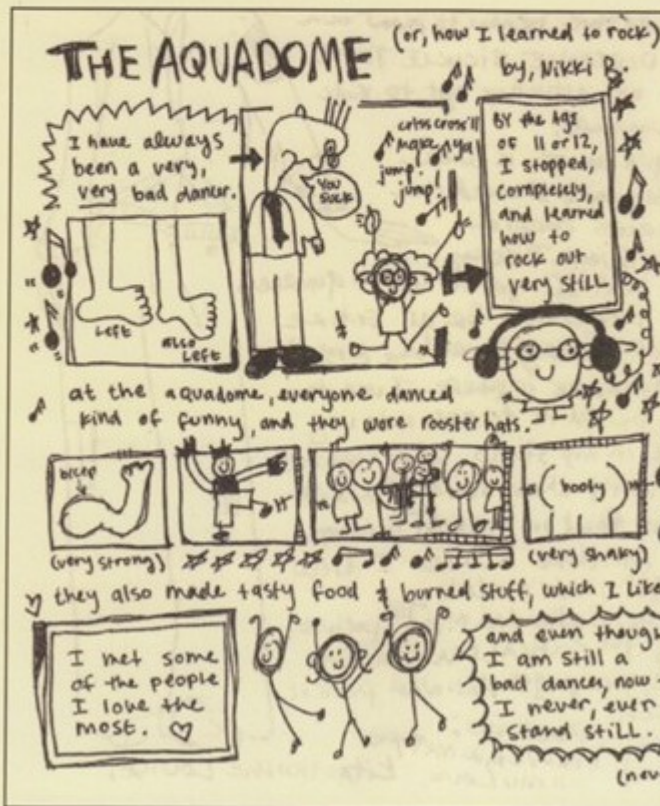 THE AQUADOME
(or, how I learned to rock)
by, Nikki B.
I have always
been a very,
very bad dancer.
LEFT
also
LEFT
You
SUCK
criss cross'll
make ya!
jump!
jump!
BY the age
OF 11 or 12,
I stopped,
completely,
and learned
how to
rock out
very STILL
at the aquadome, everyone danced
kind of funny, and they wore rooster hats.
bicep
(very strong)
booty
(very shaky)
they also made tasty food & burned stuff, which I like
I met some
of the people
I love the
most.
and even though
I am still a
bad dancer, now
I never, ever
stand still.